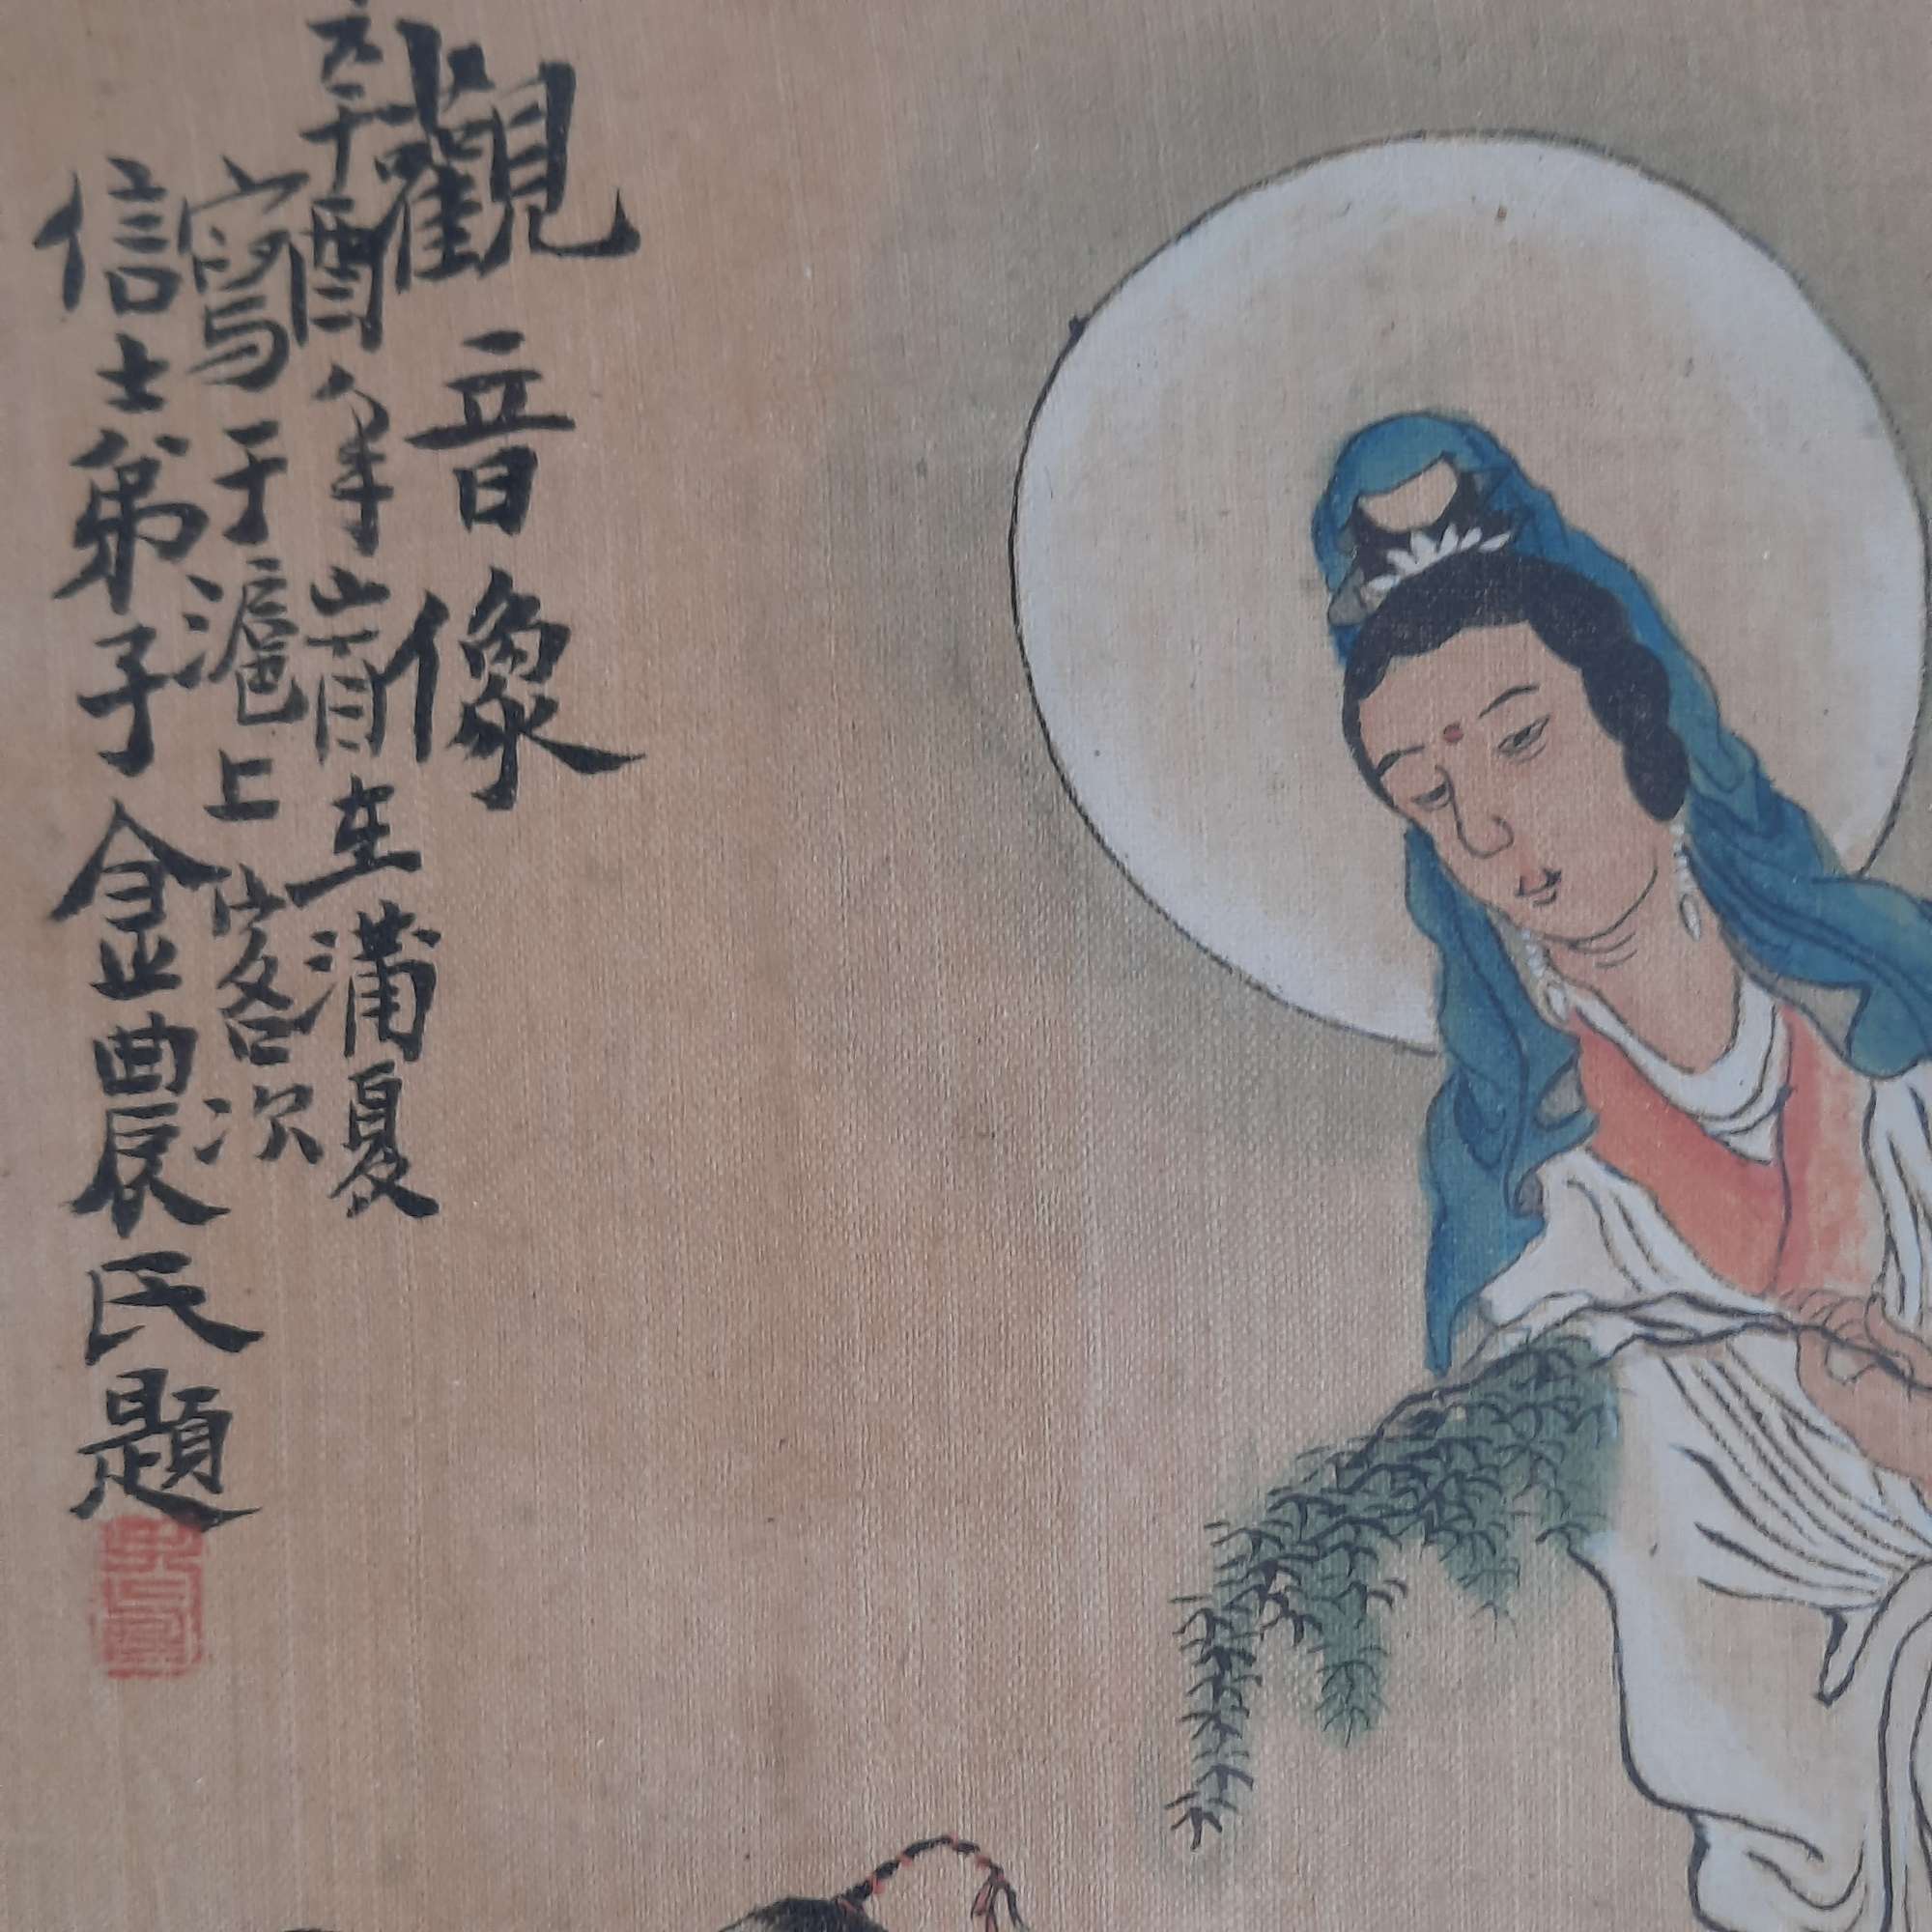 觀音像
辛酉年旹在蒲夏
寫于滬上客次
信士弟子金農氏題